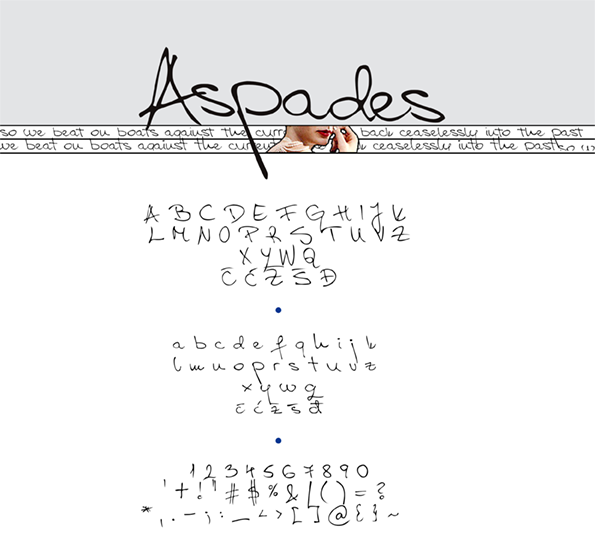 Aspades
so we beat on boats against the curr back ceaselessly into the past
we beat on boats against the current ceaselessly into the past so
A B C D E F G H I J K
L M N O P R S T U V Z
X Y W Q
Č Ć Ž Š Đ
a b c d e f g h i j k
l m n o p r s t u v z
x y w q
č ć ž š đ
1 2 3 4 5 6 7 8 9 0
' + ! " # $ % & / ( ) = ?
* , . - ; : _ < > [ ] @ { } ~